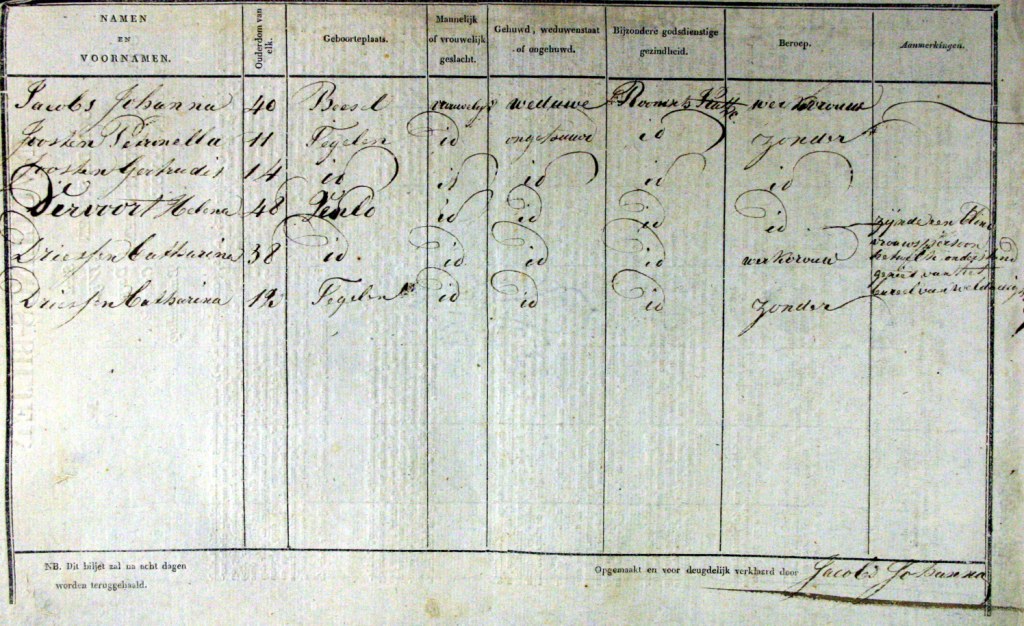 NAMEN EN VOORNAMEN. Ouderdom van elk. Geboorteplaats. Mannelijk of vrouwelijk geslacht. Gehuwd, weduwenstaat of ongehuwd. Bijzondere godsdienstige gezindheid. Beroep. Aanmerkingen.
Jacobs Johanna 40 Beesel vrouwelijk weduwe Rooms werkvrouw
Joosten Petronella 11 Tegelen id id zonder
Joosten Gertrudis 14 id id id id id
Dervoort Helena 48 Venlo id id id id zijnde een
Driessen Catharina 38 id id id id werkvrouw vrouwspersoon
Driessen Catharina 12 Tegelen id id id zonder van het
NB. Dit biljet zal na acht dagen
worden teruggehaald.
Opgemaakt en voor deugdelijk verklaard door Jacobs Johanna